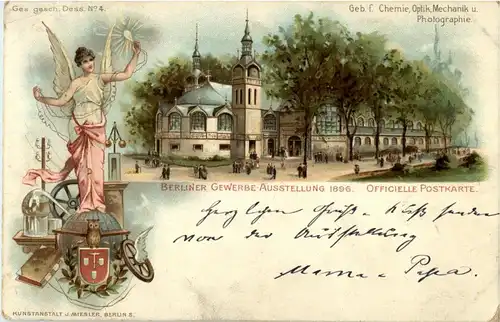 Ges. gesch. Dess. No 4.
Geb. f. Chemie, Optik, Mechanik u.
Photographie.
BERLINER GEWERBE-AUSSTELLUNG 1896. OFFICIELLE POSTKARTE.
Herzlichen Gruß u. Kuß senden
von der Ausstellung
Mama u. Papa.
KUNSTANSTALT J. MIESLER, BERLIN S.